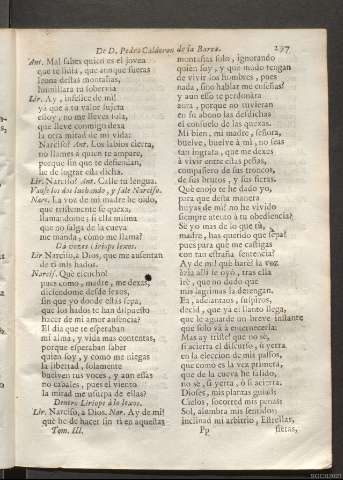 De D. Pedro Calderon de la Barca. 297
Ant. Mal sabes quien es el joven
que te lidia, que aunque fueras
fiera destas montañas,
humillara tu sobervia
Lir. Ay, infelice de mi!
ya que a tu valor sujeta
estoy, no me lleves sola,
que lleve conmigo dexa
la otra mitad de mi vida:
Narciso? Ant. Los labios cierra,
no llames à quien te ampare,
porque sin que te defiendan,
he de lograr esta dicha.
Lir. Narciso? Ant. Calle tu lengua.
Vanse los dos luchando, y sale Narciso.
Narc. La voz de mi madre he oido,
que tristemente se quexa,
llamar dome; si ella misma
que no salga de la cueva
me manda, como me llama?
Da voces Liriope lexos.
Lir Narciso, à Dios, que me ausentan
de ti mis hados.
Narcis. Què escucho!
pues como, madre, me dexas,
diciendome desde lexos,
sin que yo donde estàs sepa,
que los hados te han dispuesto
hacer de mi amor ausencia?
El dia que te esperaban
mi alma, y vida mas contentas,
porque esperaban saber
quien soy, y como me niegas
la libertad, solamente
buelven tus voces, y aun essas
no cabales, pues el viento
la mitad me usurpa de ellas?
Dentro Liriope à lo lexos.
Lir. Narciso, à Dios. Nar. Ay de mi!
què he de hacer sin tì en aquestas
Tom. III.
montañas solo, ignorando
quien soy, y que modo tengan
de vivir los hombres, pues
nada, sino hablar me enseñas?
y aun esso te perdonàra
aora, porque no tuvieran
en su abono las desdichas
el consuelo de las quexas.
Mi bien, mi madre, señora,
buelve, buelve à mi, no seas
tan ingrata, que me dexes
à vivir entre estas peñas,
compañero de sus troncos,
de sus brutos, y sus fieras.
Què enojo te he dado yo,
para que desta manera
huyas de mi? no he vivido
siempre atento à tu obediencia?
Sè yo mas de lo que tù,
madre, has querido que sepa?
pues para què me castigas
con tan estraña sentencia?
Ay de mi! què harè? la voz
àzia allì se oyò, tras ella
irè, que no dudo que
mis lagrimas la detengan.
Ea, adelantaos, suspiros,
decid, que ya el llanto llega,
que le aguarde un breve instante
que solo và à enternecerla:
Mas ay triste! que no sè,
si acierta el discurso, si yerra
en la eleccion de mis passos,
que como es la vez primera,
que de la cueva he salido,
no sè, si yerra, ò si acierra.
Dioses, mis plantas guiad:
Cielos, socorred mis penas:
Sol, alumbra mis sentidos;
inclinad mi arbitrio, Estrellas,
Pp fieras,